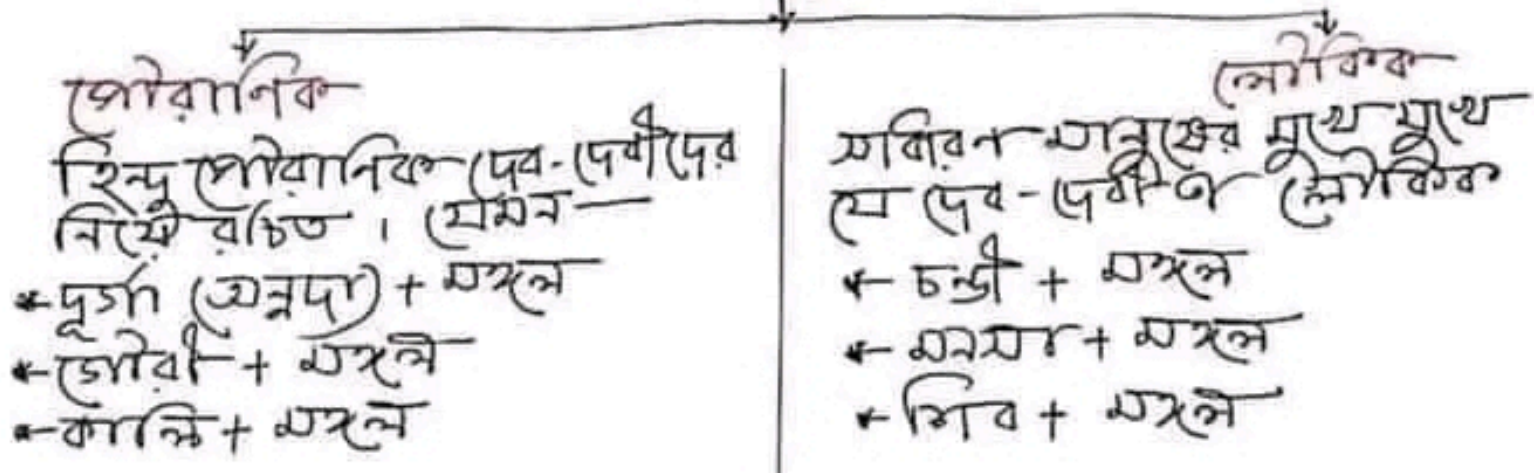 পৌরানিক
হিন্দু পৌরানিক দেব-দেবীদের
নিয়ে রচিত । যেমন—
* দূর্গা (অন্নদা) + মঙ্গল
* গৌরী + মঙ্গল
* কালি + মঙ্গল
লৌকিক
সাধারন মানুষের মুখে মুখে
যে দেব-দেবী তা লৌকিক
* চন্ডী + মঙ্গল
* মনসা + মঙ্গল
* শিব + মঙ্গল